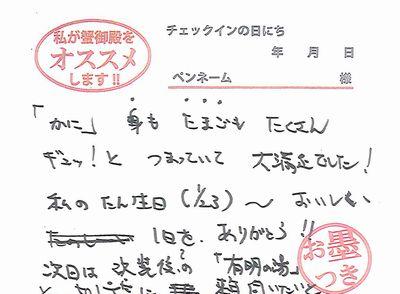 私が蟹御殿を
オススメ
します!!
チェックインの日にち
年 月 日
ペンネーム 様
「かに」 身も たまごも たくさん
ギュッ!と つまっていて 大満足でした!
私の たん生日(1/23)〜 おいしい
1日を、ありがとう!!
お墨
つき
次日は 改装後の「有明の湯」